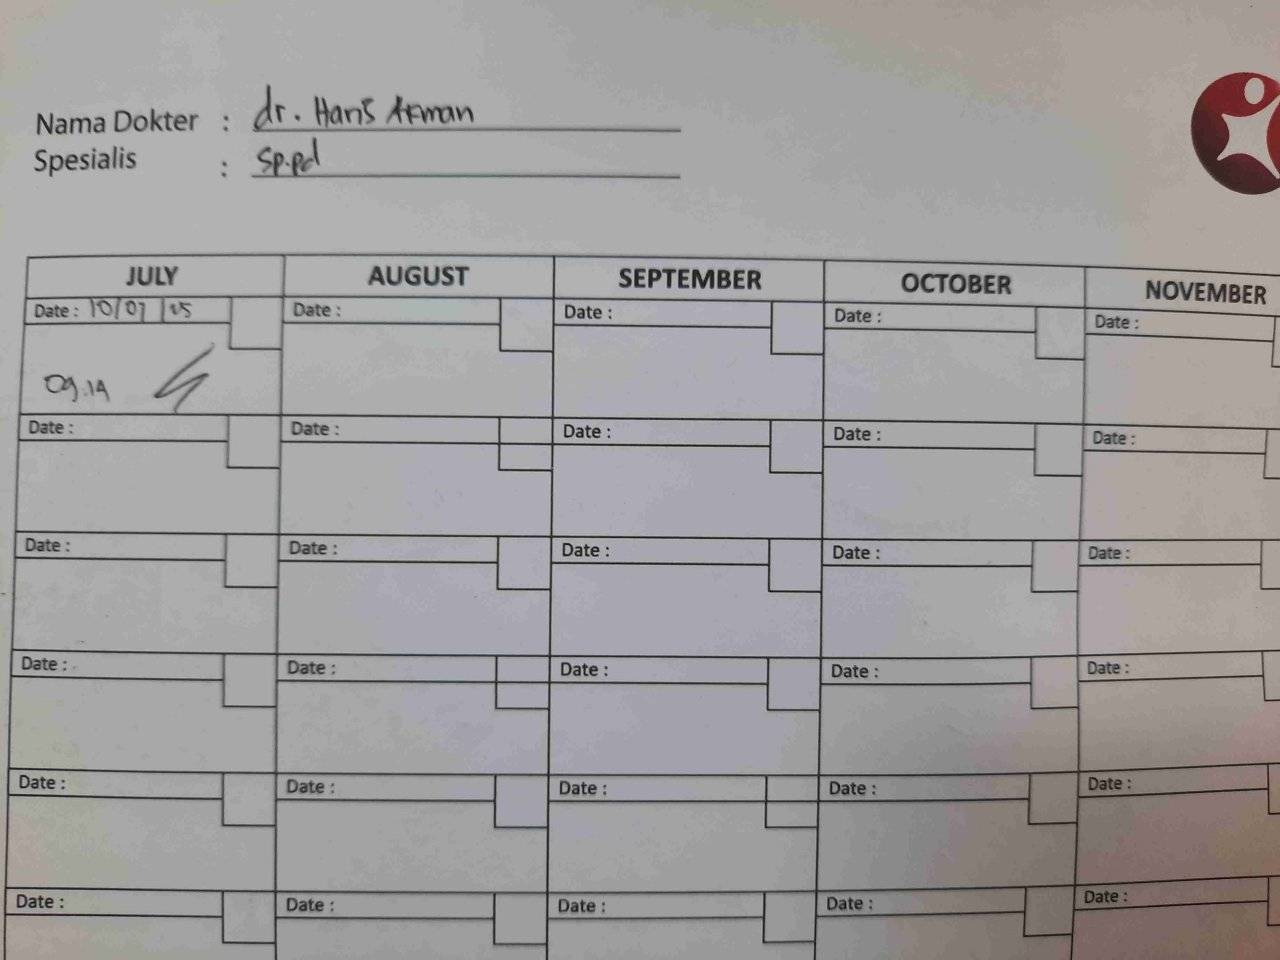 Nama Dokter : dr. Haris Arman
Spesialis : Sp.pd
JULY AUGUST SEPTEMBER OCTOBER NOVEMBER
Date : 10/07/25 Date : Date : Date : Date :
09.19
Date : Date : Date : Date : Date :
Date : Date : Date : Date : Date :
Date : Date : Date : Date : Date :
Date : Date : Date : Date : Date :
Date : Date : Date : Date : Date :